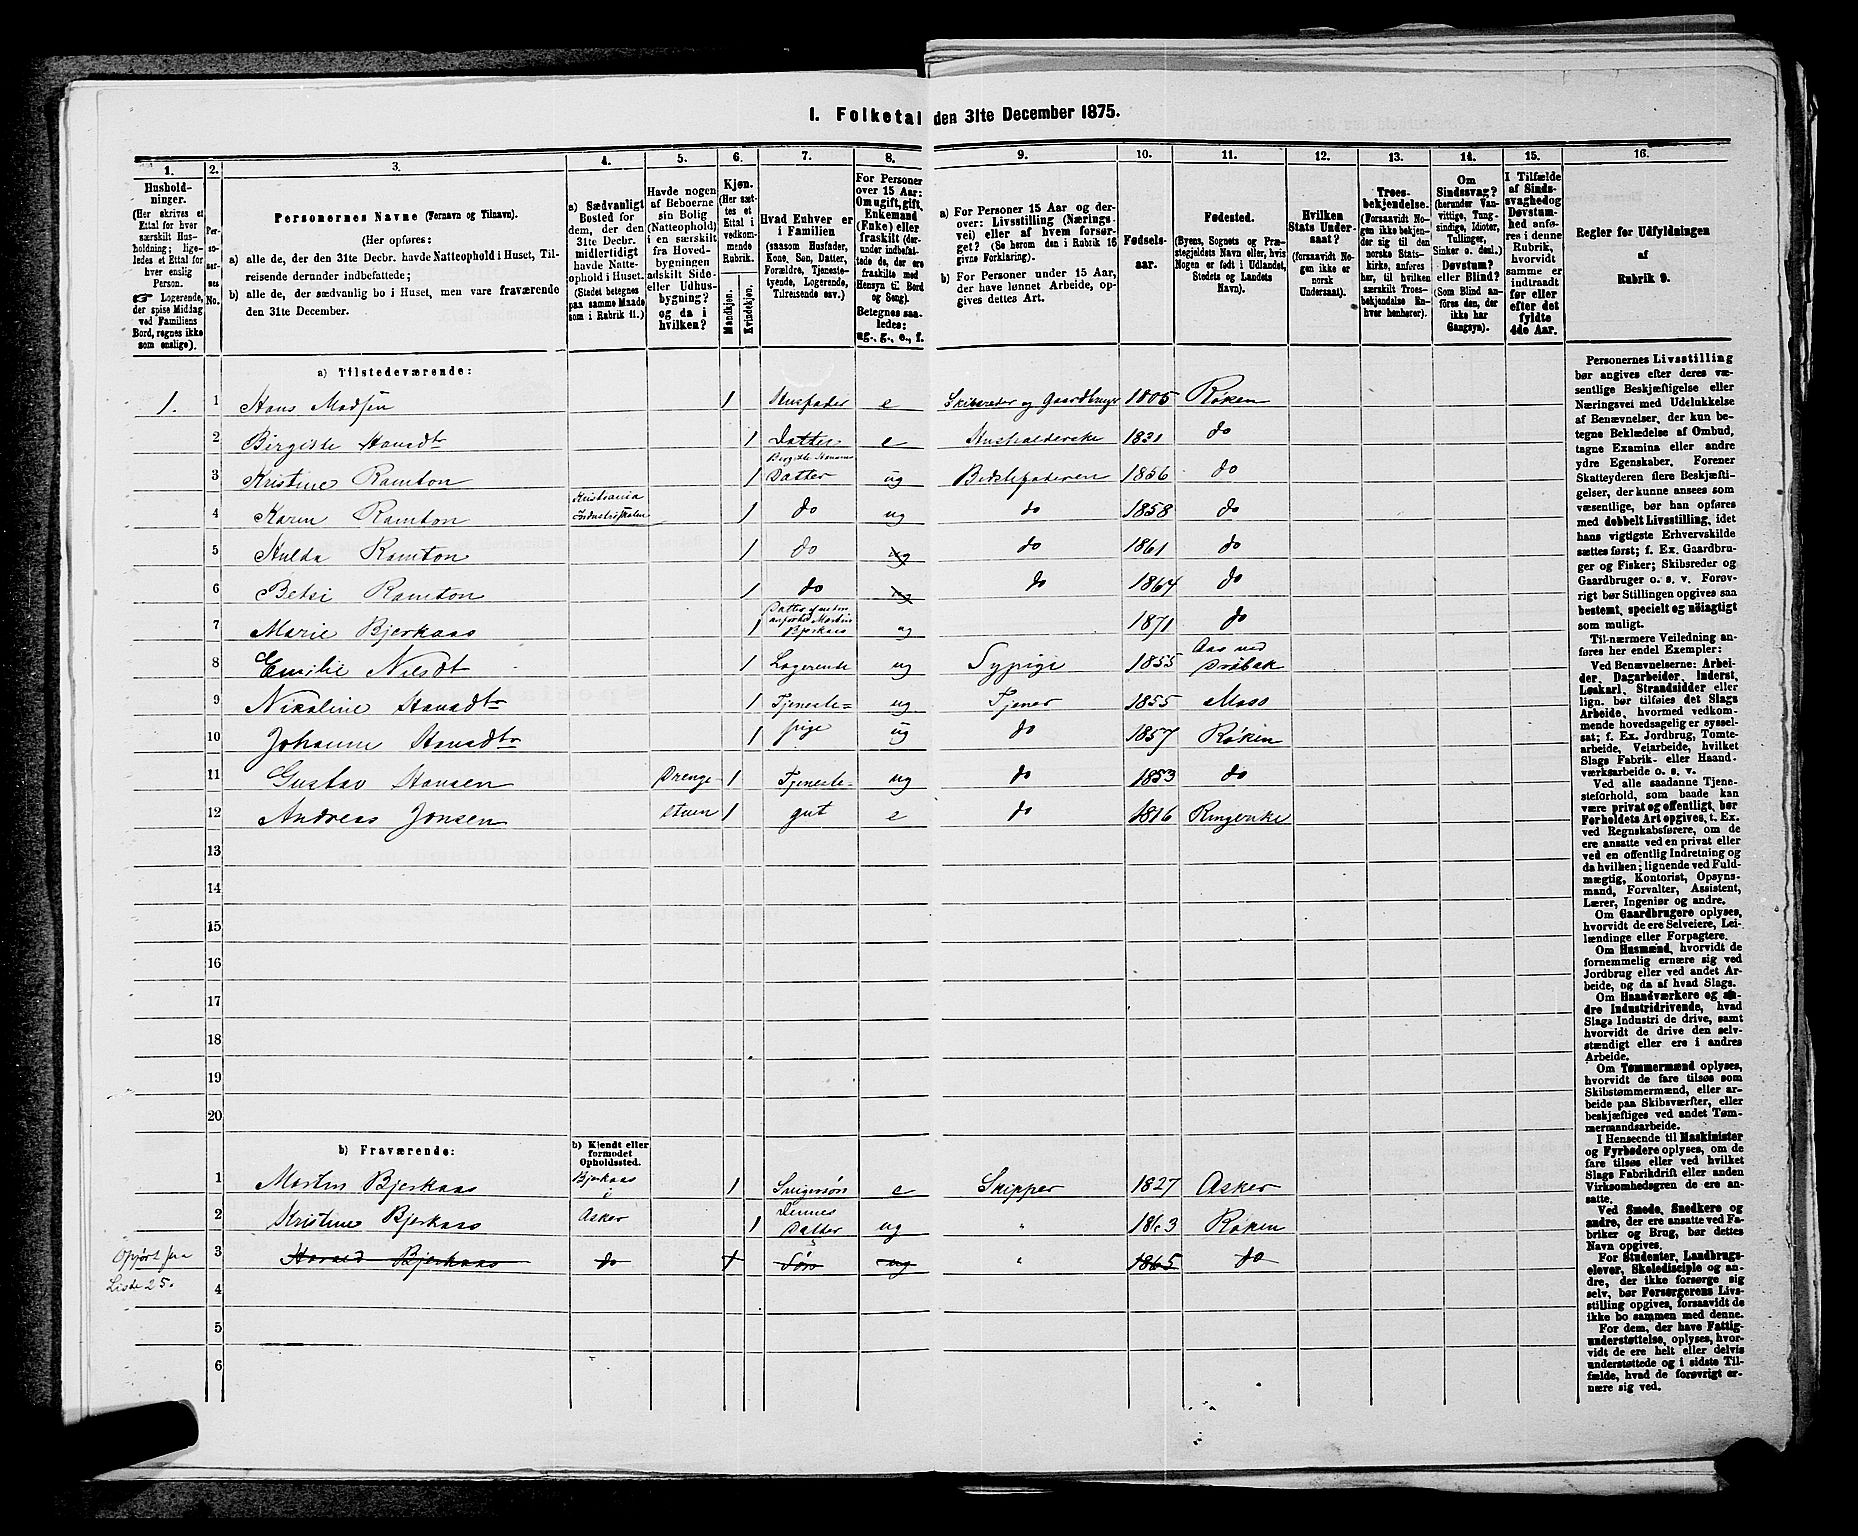 I. Folketal den 31te December 1875.
1. 2. 3. 4. 5. 6. 7. 8. 9. 10. 11. 12. 13. 14. 15. 16.
Hushold-
ninger.
(Her skrives et
Ettal for hver
særskilt Hus-
holdning; lige-
ledes et Ettal for
hver enslig
Person.
☞ Logerende,
der spise Middag
ved Familiens
Bord, regnes ikke
som enslige).
Per-
so-
ner-
nes
No.
Personernes Navne (Fornavn og Tilnavn).
(Her opføres:
a) alle de, der den 31te Decbr. havde Natteophold i Huset, Til-
reisende derunder indbefattede;
b) alle de, der sædvanlig bo i Huset, men vare fraværende
den 31te December.
a) Sædvanligt
Bosted for
dem, der den
31te Decbr.
midlertidigt
havde Natte-
ophold i Huset.
(Stedet betegnes
paa samme Maade
som i Rubrik 11.)
Havde nogen
af Beboerne
sin Bolig
(Natteophold)
i en særskilt
fra Hoved-
bygningen
adskilt Side-
eller Udhus-
bygning?
og da i
hvilken?
Kjøn.
(Her sæt-
tes et
Ettal i
vedkom-
mende
Rubrik.
Mandkjøn.
Kvindekjøn.
Hvad Enhver er
i Familien
(saasom Husfader,
Kone, Søn, Datter,
Forældre, Tjeneste-
tyende, Logerende,
Tilreisende osv.)
For Personer
over 15 Aar:
Om ugift, gift,
Enkemand
(Enke) eller
fraskilt (der-
under indbefat-
tede de, der ere
fraskilte med
Hensyn til Bord
og Seng).
Betegnes saa-
ledes:
ug., g., e., f.
a) For Personer 15 Aar og der-
over: Livsstilling (Nærings-
vei) eller af hvem forsør-
get? (Se herom den i Rubrik 16
givne Forklaring).
b) For Personer under 15 Aar,
der have lønnet Arbeide, op-
gives dettes Art.
Fødsels-
aar.
Fødested.
(Byens, Sognets og Præ-
stegjeldets Navn eller, hvis
Nogen er født i Udlandet,
Stedets og Landets
Navn).
Hvilken
Stats Under-
saat?
(forsaavidt No-
gen ikke er
norsk
Undersaat).
Troes-
bekjendelse.
(Forsaavidt No-
gen ikke bekjen-
der sig til den
norske Stats-
kirke, anføres
her, til hvilken
særskilt Troes-
bekjendelse En-
hver henhører).
Om
Sindssvag?
(herunder Van-
vittige, Tung-
sindige, Idioter,
Tullinger,
Sinker o. desl.)
Døvstum?
eller Blind?
(Som Blind an-
føres den, der
ikke har
Gangsyn).
I Tilfælde
af Sinds-
svaghed og
Døvstum-
hed anføres
i denne
Rubrik,
hvorvidt
samme er
indtraadt
før eller
efter det
fyldte
4de Aar.
Regler for Udfyldningen
af
Rubrik 9.
a) Tilstedeværende:
1. 1 Hans Madsen 1 Husfader e Skibsreder og Gaardbruger 1805 Røken
2 Birgitte Hansdtr 1 Datter e Husholderske 1831 do
3 Kristine Ramton 1 Birgitte Hansens Datter ug Bedstefaderen 1856 do
4 Karen Ramton Kristiania Industriskolen 1 do ug do 1858 do
5 Hulda Ramton 1 do ug do 1861 do
6 Betsi Ramton 1 do ug do 1864 do
7 Marie Bjerkaas 1 Datter af neden anførted Morten Bjerkaas ug 1871 do
8 Emilie Nilsdt 1 Logerende ug Sypige 1855 Aas ved Drøbak
9 Nikoline Hansdtr 1 Tjeneste= ug Tjener 1855 Moss
10 Johanne Hansdtr 1 pige ug do 1857 Røken
11 Gustav Hansen Drenge- 1 Tjeneste= ug do 1853 do
12 Andreas Jonsen stuen 1 gut e do 1816 Ringerike
13
14
15
16
17
18
19
20
b) Fraværende:
b) Kjendt eller
formodet
Opholdssted.
1 Morten Bjerkaas Bjerkaas i 1 Svigersøn e Skipper 1827 Asker
2 Kristine Bjerkaas Asker 1 Dennes Datter ug " 1863 Røken
Opført paa
Liste 25.
3 Harald Bjerkaas do 1 Søn ug " 1865 do
4
5
6
Personernes Livsstilling
bør angives efter deres væ-
sentlige Beskjæftigelse eller
Næringsvei med Udelukkelse
af Benævnelser, der kun be-
tegne Beklædelse af Ombud,
tagne Examina eller andre
ydre Egenskaber. Forener
Skatteyderen flere Beskjæfti-
gelser, der kunne ansees som
væsentlige, bør han opføres
med dobbelt Livsstilling, idet
hans vigtigste Erhvervskilde
sættes først; f. Ex. Gaardbru-
ger og Fisker; Skibsreder og
Gaardbruger o. s. v. Forøv-
rigt bør Stillingen opgives saa
bestemt, specielt og nøiagtigt
som muligt.
Til nærmere Veiledning an-
føres her endel Exempler:
Ved Benævnelserne: Arbei-
der, Dagarbeider, Inderst,
Løskarl, Strandsidder eller
lign. bør tilføies det Slags
Arbeide, hvormed vedkom-
mende hovedsagelig er syssel-
sat; f. Ex. Jordbrug, Tomte-
arbeide, Veiarbeide, hvilket
Slags Fabrik- eller Haand-
værksarbeide o. s. v.
Ved alle saadanne Tjene-
steforhold, som baade kan
være privat og offentligt, bør
Forholdets Art opgives, t. Ex.
ved Regnskabsførere, om de
ere ansatte ved en privat eller
ved en offentlig Indretning og
da hvilken; lignende ved Fuld-
mægtig, Kontorist, Opsyns-
mand, Forvalter, Assistent,
Lærer, Ingeniør og andre.
Om Gaardbrugere oplyses,
hvorvidt de ere Selveiere, Lei-
lændinge eller Forpagtere.
Om Husmænd, hvorvidt de
fornemmelig ernære sig ved
Jordbrug eller ved andet Ar-
beide, og da af hvad Slags.
Om Haandværkere og an-
dre Industridrivende, hvad
Slags Industri de drive, samt
hvorvidt de drive den selv-
stændigt eller ere i andres
Arbeide.
Om Tømmermænd oplyses,
hvorvidt de fare tilsøs som
Skibstømmermænd, eller ar-
beide paa Skibsværfter, eller
beskjæftiges ved andet Tøm-
mermandsarbeide.
I Henseende til Maskinister
og Fyrbødere oplyses, om de
fare tilsøs eller ved hvilket
Slags Fabrikdrift eller anden
Virksomhedsgren de ere an-
satte.
Ved Smede, Snedkere og
andre, der ere ansatte ved Fa-
briker og Brug, bør dettes
Navn opgives.
For Studenter, Landbrugs-
elever, Skoledisciple og an-
dre, der ikke forsørge sig
selv, bør Forsørgerens Livs-
stilling opgives, forsaavidt de
ikke bo sammen med denne.
For dem, der have Fattig-
understøttelse, oplyses, hvor-
vidt de ere helt eller delvis
understøttede og i sidste Til-
fælde, hvad de forøvrigt er-
nære sig ved.